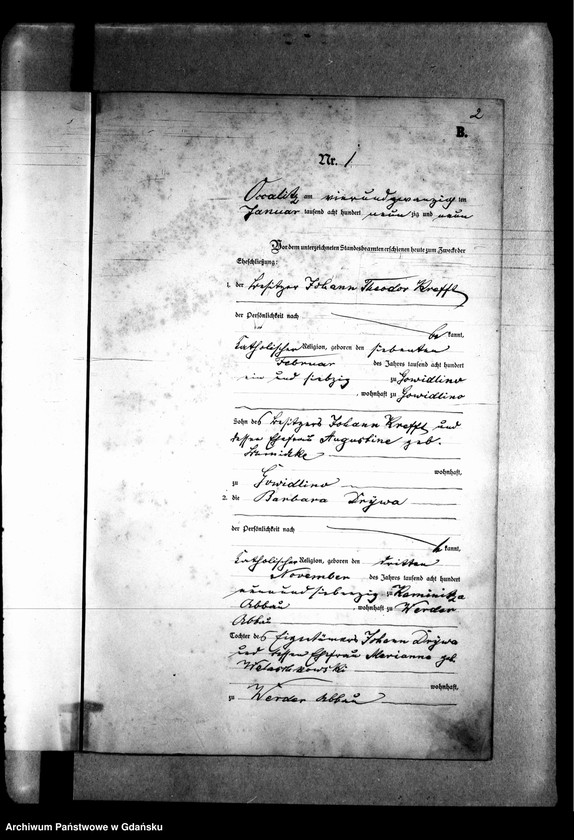 2
B.
Nr. 1
am vierundzwanzigten
Januar tausend acht hundert neun zig und neun
Vor dem unterzeichneten Standesbeamten erschienen heute zum Zwecke der
Eheschließung:
1. der Besitzer Johann Theodor Krefft
der Persönlichkeit nach
bekannt,
katholischer Religion, geboren den siebenten
Februar des Jahres tausend acht hundert
ein und siebzig zu Gowidlino
, wohnhaft zu Gowidlino
Sohn des Besitzers Johann Krefft und
dessen Ehefrau Augustine geb.
wohnhaft,
zu Gowidlino
2. die Barbara Drywa
der Persönlichkeit nach
bekannt,
katholischer Religion, geboren den dritten
November des Jahres tausend acht hundert
neun und siebenzig zu Kaminitza
Abbau , wohnhaft zu Werder
Abbau
Tochter des Eigentümers Johann Drywa
und dessen Ehefrau Marianna geb.
wohnhaft,
zu Werder Abbau
Archiwum Państwowe w Gdańsku